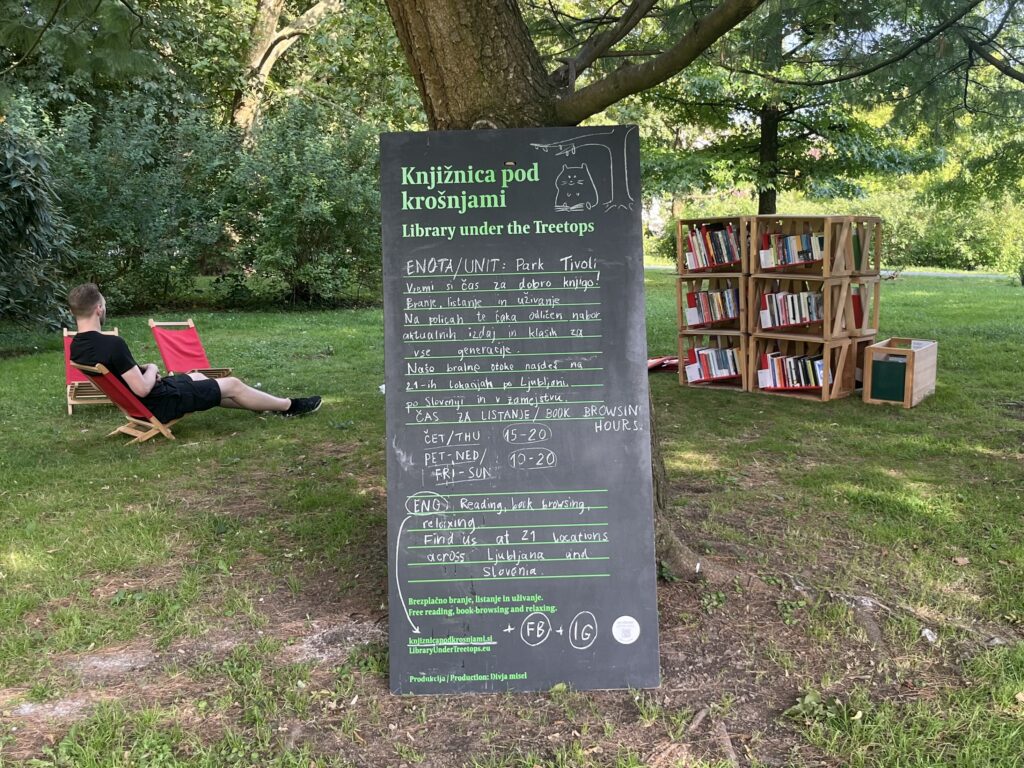 Knjižnica pod
krošnjami
Library under the Treetops
ENOTA/UNIT: Park Tivoli
Vzemi si čas za dobro knjigo!
Branje, listanje in uživanje.
Na policah te čaka odličen nabor
aktualnih izdaj in klasik za
vse generacije.
Našo bralne otoke najdeš na
21-ih lokacijah po Ljubljani,
po Sloveniji in v zamejstvu.
ČAS ZA LISTANJE/BOOK BROWSIN
HOURS
ČET/THU 15-20
PET-NED/ 10-20
FRI-SUN
ENG Reading, book browsing,
relaxing
Find us at 21 locations
across Ljubljana and
Slovenia.
Brezplačno branje, listanje in uživanje.
Free reading, book-browsing and relaxing.
knjiznicapodkrosnjami.si + FB + IG
LibraryUnderTreetops.eu
Produkcija | Production: Divja misel